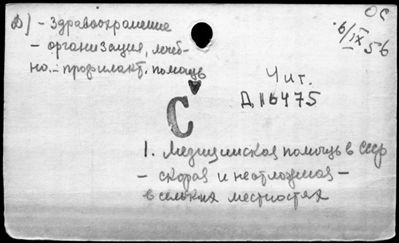 Д) - Здравоохранение
- организация, лечеб-
но-профилакт. помощь
ОС
6/IX 56
Чит.
Д 16475
С
1. Медицинская помощь в СССР
- скорая и неотложная -
в сельских местностях